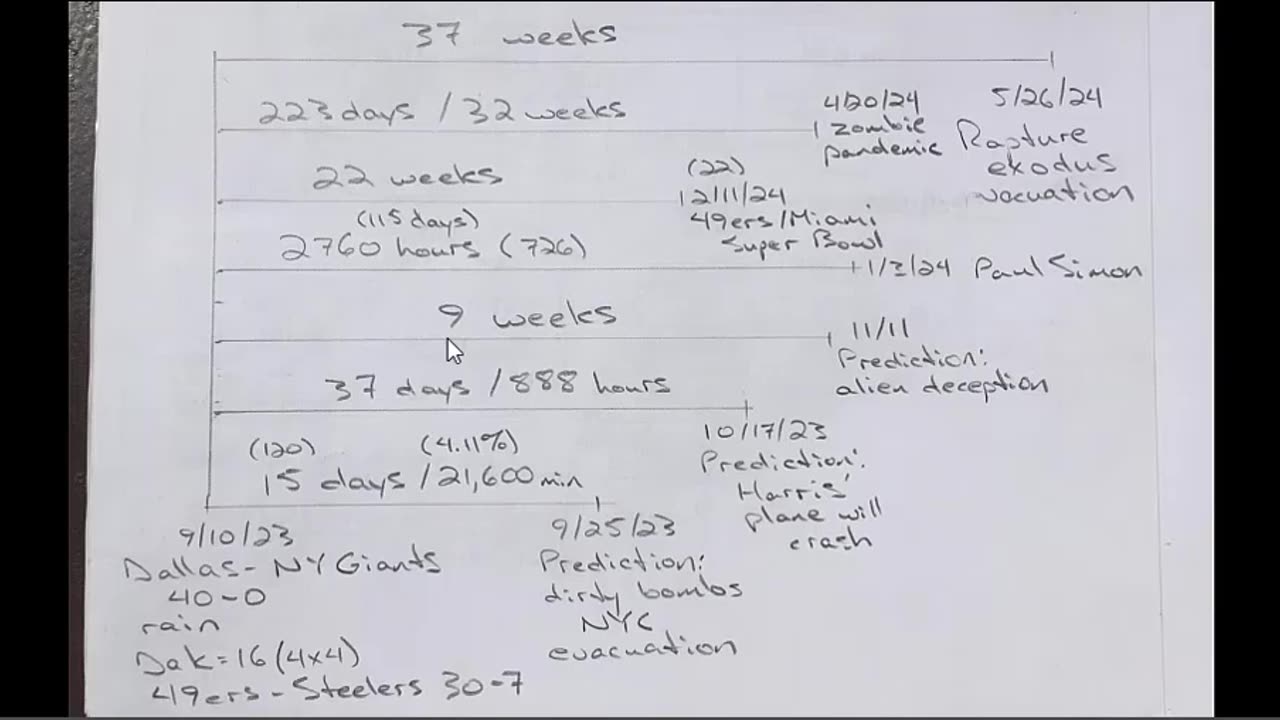 37 weeks
223 days / 32 weeks
4/20/24
zombie
pandemic
5/26/24
Rapture
exodus
vacuation
22 weeks
(22)
12/11/24
49ers/Miami
Super Bowl
(115 days)
2760 hours (726)
Paul Simon
9 weeks
11/11
Prediction:
alien deception
37 days / 888 hours
10/17/23
Prediction:
Harris'
plane will
crash
(120) (4.11%)
15 days / 21,600 min
9/10/23
Dallas - NY Giants
40-0
rain
Dak = 16 (4x4)
49ers - Steelers 30-7
9/25/23
Prediction:
dirty bombs
NYC
evacuation